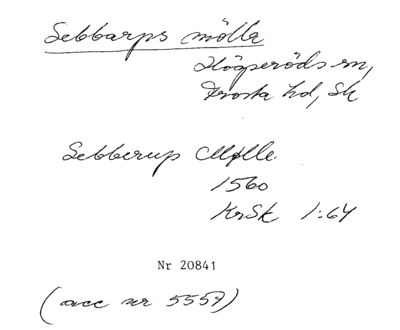 Sebbarps mölla
Högseröds sn,
Frosta hd, Sk
Sebberup Mølle
1560
KrSk 1:64
Nr 20841
(acc nr 5557)